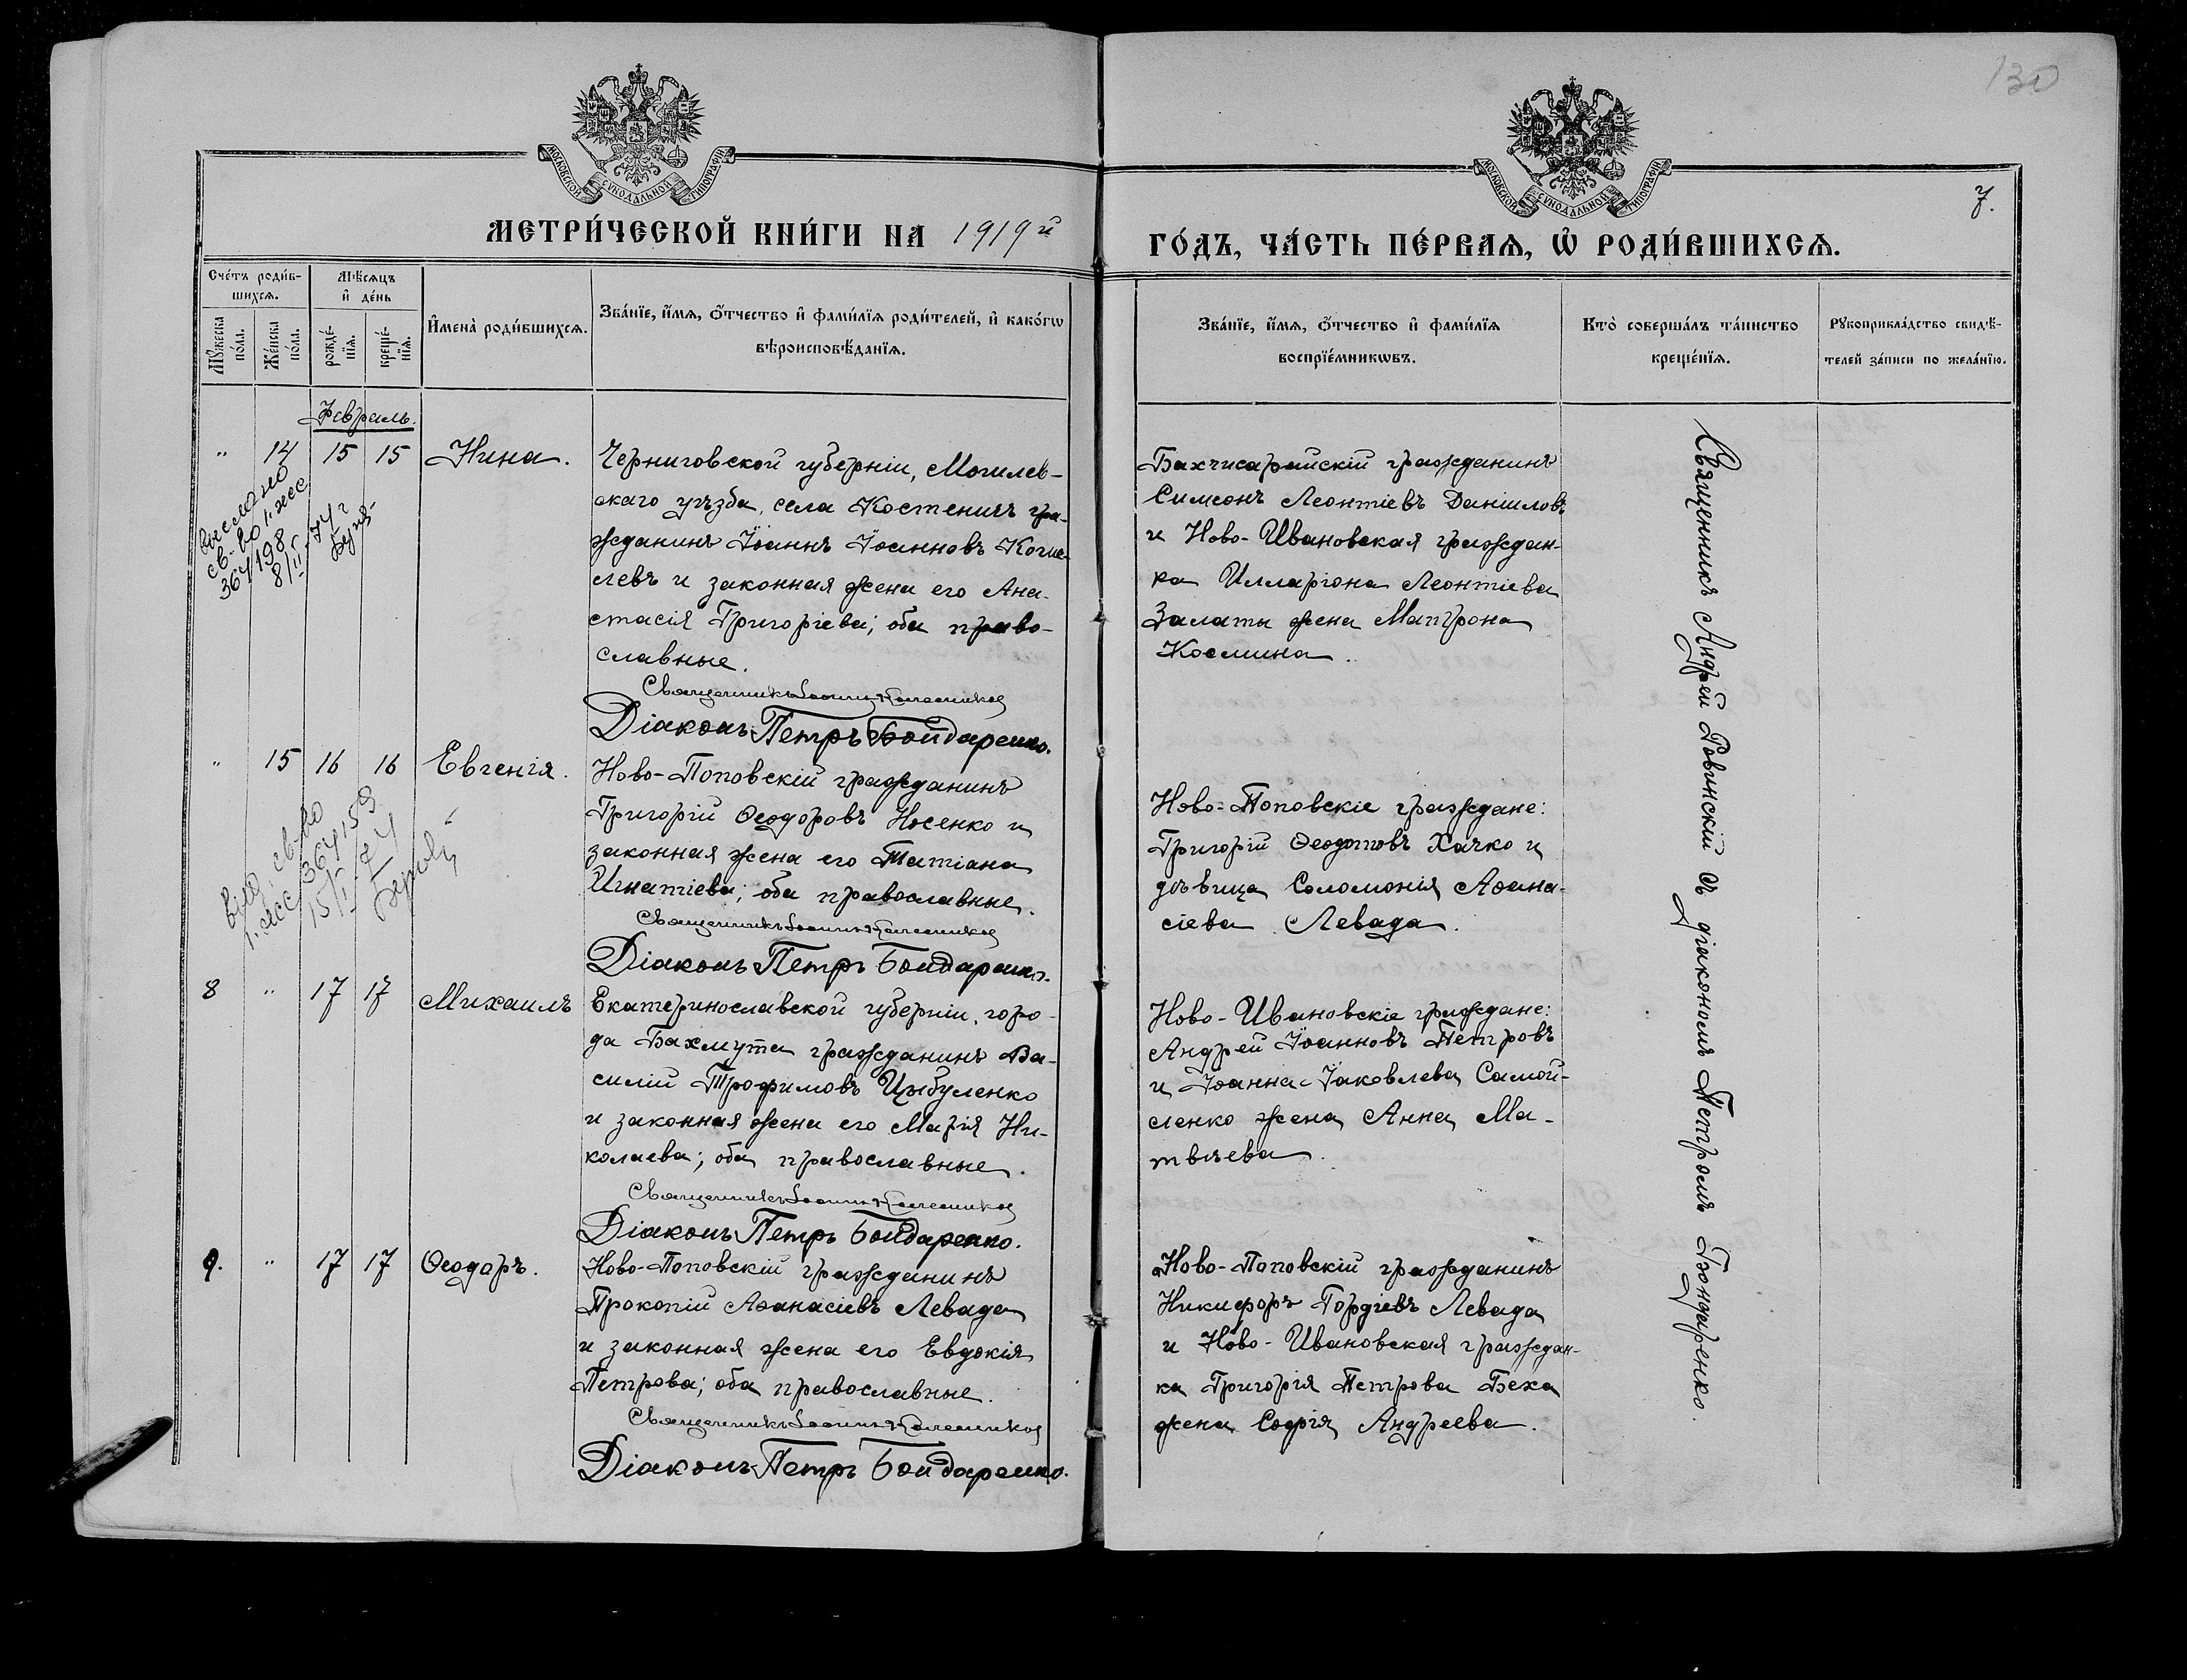 130
МОСКОВСКОЙ СѴНОДАЛЬНОЙ ТИПОГРАФІИ
МОСКОВСКОЙ СѴНОДАЛЬНОЙ ТИПОГРАФІИ
7.
МЕТРИ́ЧЕСКОЙ КНИ́ГИ НА 1919й
ГО́ДЪ, ЧА́СТЬ ПЕ́РВАѦ, Ѡ РОДИ́ВШИХСѦ.
Сче́тъ роди́в-
шихсѧ.
Мѣ́сѧцъ
и҆ де́нь
Мꙋ́жеска
по́ла.
Же́нска
по́ла.
рожде́-
нїѧ.
креще́-
нїѧ.
И҆мена̀ роди́вшихсѧ.
Зва́нїе, и҆́мѧ, ѻ҆́тчество и҆ фами́лїѧ роди́телей, и҆ како́гѡ
вѣроисповѣ́данїѧ.
Зва́нїе, и҆́мѧ, ѻ҆́тчество и҆ фами́лїѧ
воспрїе́мникѡвъ.
Кто̀ соверша́лъ та́инство
креще́нїѧ.
Рꙋкоприкла́дство свидѣ́-
телей за́писи по жела́нїю.
Февраль.
" 14 15 15 Нина.
Черниговской губерніи, Могилев-
скаго уѣзда, села Костеничъ гра-
жданинъ Іоаннъ Іоанновъ Коше-
левъ и законная жена его Ана-
стасія Григоріева; оба право-
славные.
Священникъ Іоаннъ Колесниковъ
Діаконъ Петръ Бондаренко.
Бахчисарайскій гражданинъ
Симеонъ Леонтіевъ Даніиловъ
и Ново-Ивановская граждан-
ка Илларіона Леонтіева
Залаты жена Матрона
Космина.
выслано
св-во 1. жсс
364198
8/II-74 г
" 15 16 16 Евгенія.
Ново-Поповскій гражданинъ
Григорій Ѳеодоровъ Носенко и
законная жена его Татіана
Игнатіева; оба православные.
Священникъ Іоаннъ Колесниковъ
Діаконъ Петръ Бондаренко.
Ново-Поповскіе граждане:
Григорій Ѳеодотовъ Хачко и
дѣвица Соломонія Аѳана-
сіева Левада.
выд. св-во
1. жсс 364159
15/I-74
8 " 17 17 Михаилъ
Екатеринославской губерніи, горо-
да Бахмута гражданинъ Ва-
силій Трофимовъ Цыбуленко
и законная жена его Марія Ни-
колаева; оба православные.
Священникъ Іоаннъ Колесниковъ
Діаконъ Петръ Бондаренко.
Ново-Ивановскіе граждане:
Андрей Іоанновъ Петровъ
и Іоанна Іаковлева Самой-
ленко жена Анна Ма-
твѣева.
9. " 17 17 Ѳеодоръ.
Ново-Поповскій гражданинъ
Прокопій Аѳанасіевъ Левада
и законная жена его Евдокія
Петрова; оба православные.
Священникъ Іоаннъ Колесниковъ
Діаконъ Петръ Бондаренко.
Ново-Поповскій гражданинъ
Никифоръ Гордіевъ Левада
и Ново-Ивановская граждан-
ка Григорія Петрова Беха
жена Софія Андреева.
Священникъ Андрей Ровинскій съ діакономъ Петромъ Бондаренко.